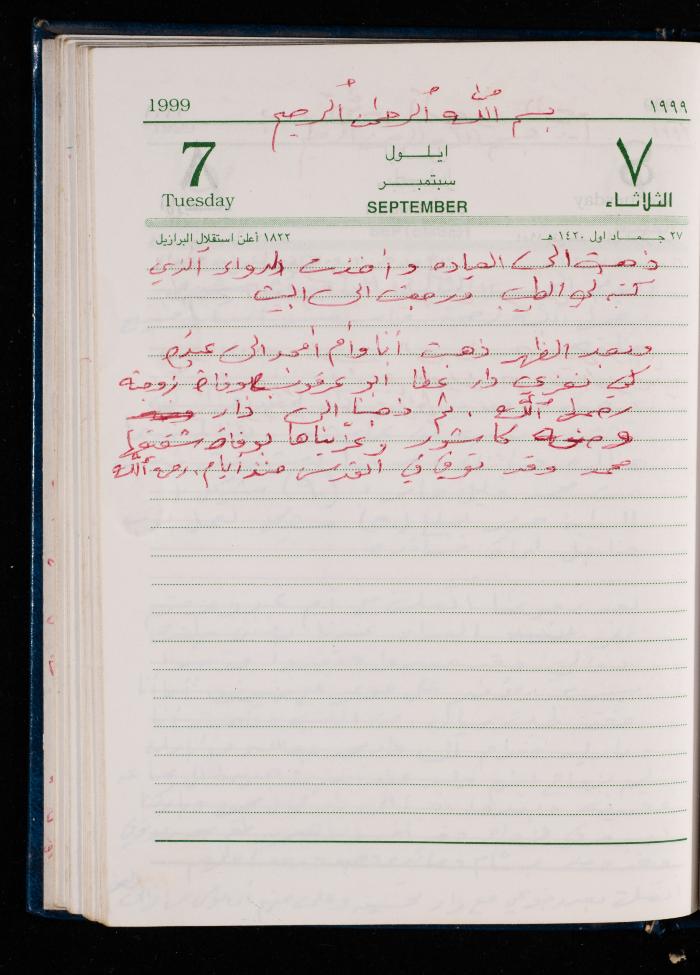 1999
١٩٩٩
بسم الله الرحمن الرحيم
7
ايلول
٧
Tuesday
سبتمبر
الثلاثاء
SEPTEMBER
١٨٢٢ أعلن استقلال البرازيل
٢٧ جمـاد اول ١٤٢٠ هـ
ذهبت الى العياده وأخذت الدواء الذي
كتبه لي الطبيب ورجعت الى البيت
وبعد الظهر ذهبت أنا وأم أمجد الى
كي نعزي دار عطا ابو عرقوب بوفاة زوجته
رحمها الله . ثم ذهبنا الى دار
وعزيناها بوفاة شقيقها
محمد وقد توفي في القدس منذ أيام . رحمه الله